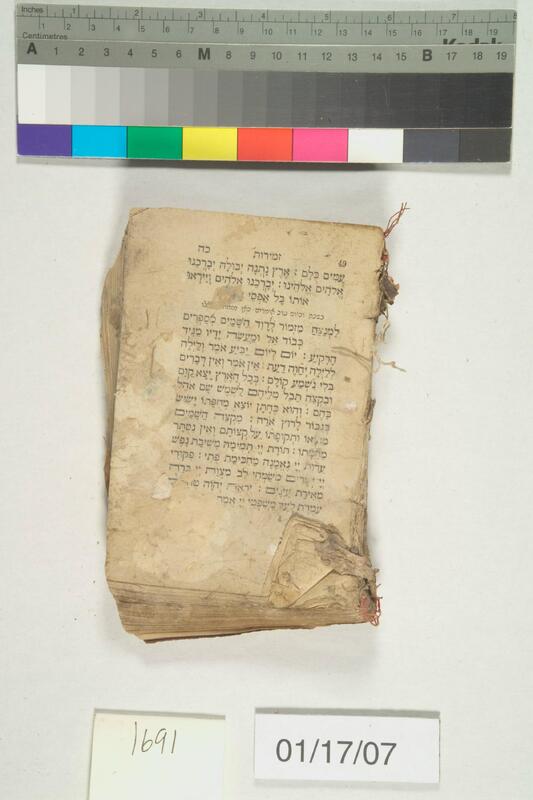 Inches 1 2 3 4 5 6 7 8
Centimetres 1 2 3 4 5 6 7 8 9 10 11 12 13 14 15 16 17 18 19
Kodak
A 1 2 3 4 5 6 M 8 9 10 11 12 13 14 15 B 17 18 19
49 זמירות כה
עַמִּים כֻּלָּם : אֶרֶץ נָתְנָה יְבוּלָהּ יְבָרְכֵנוּ
אֱלֹהִים אֱלֹהֵינוּ : יְבָרְכֵנוּ אֱלֹהִים וְיִירְאוּ
אוֹתוֹ כָּל אַפְסֵי
בשבת ויום טוב אומרים
לַמְנַצֵּחַ מִזְמוֹר לְדָוִד הַשָּׁמַיִם מְסַפְּרִים
כְּבוֹד אֵל וּמַעֲשֵׂה יָדָיו מַגִּיד
הָרָקִיעַ : יוֹם לְיוֹם יַבִּיעַ אֹמֶר וְלַיְלָה
לְלַיְלָה יְחַוֶּה דָּעַת : אֵין אֹמֶר וְאֵין דְּבָרִים
בְּלִי נִשְׁמָע קוֹלָם : בְּכָל הָאָרֶץ יָצָא קַוָּם
וּבִקְצֵה תֵבֵל מִלֵּיהֶם לַשֶּׁמֶשׁ שָׂם אֹהֶל
בָּהֶם : וְהוּא כְּחָתָן יוֹצֵא מֵחֻפָּתוֹ יָשִׂישׂ
כְּגִבּוֹר לָרוּץ אֹרַח : מִקְצֵה הַשָּׁמַיִם
מוֹצָאוֹ וּתְקוּפָתוֹ עַל קְצוֹתָם וְאֵין נִסְתָּר
מֵחַמָּתוֹ : תּוֹרַת יְיָ תְּמִימָה מְשִׁיבַת נָפֶשׁ
עֵדוּת יְיָ נֶאֱמָנָה מַחְכִּימַת פֶּתִי : פִּקּוּדֵי
יְיָ יְשָׁרִים מְשַׂמְּחֵי לֵב מִצְוַת יְיָ בָּרָה
מְאִירַת עֵינָיִם : יִרְאַת יְהֹוָה
עוֹמֶדֶת לָעַד מִשְׁפְּטֵי יְיָ אֱמֶת
1691
01/17/07